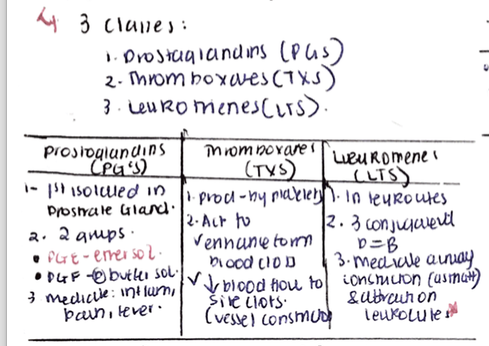 3 Classes:
1. Prostaglandins (PGs)
2. Thromboxanes (TXS)
3. Leukotrienes (LTS).
Prostaglandins
(PG's)
1- 1st isolated in
Prostrate Gland.
2. 2 grups.
• PGE - ether sol.
• PGF - buffer sol.
3 mediate: inflam,
pain, fever.
Thromboxanes
(TXS)
1. prod - by platelets
2. Act to
✓ enhance form
blood clot
✓ ↓ blood flow to
site clots.
(vessel constric
Leukotrienes
(LTS)
1. In leukocytes
2. 3 conjugated
D=B
3. Mediate airway
constriction (asmatt)
& attraction
leukocytes